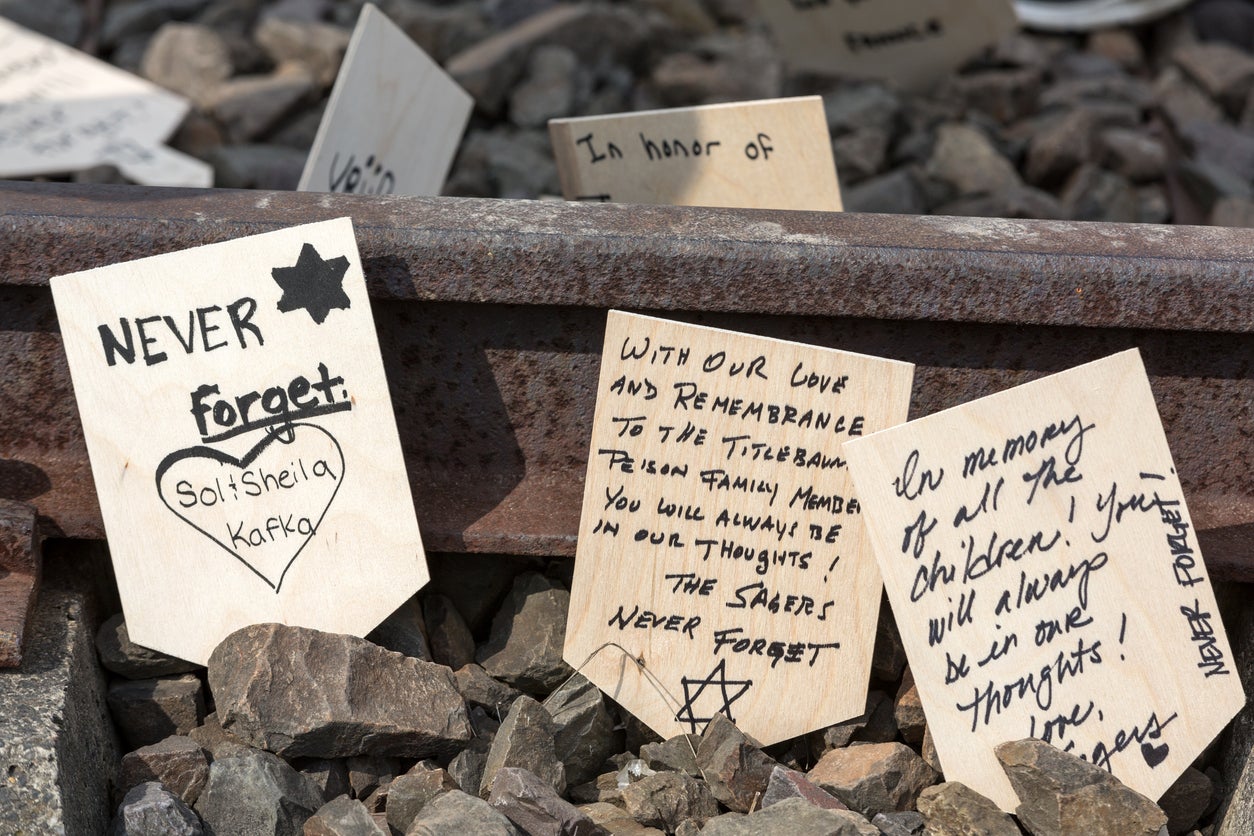 In honor of
NEVER
forget.
Sol + Sheila
Kafka
WITH OUR LOVE
AND REMEMBRANCE
TO THE TITLEBAUM
PEISON FAMILY MEMBE
YOU WILL ALWAYS BE
IN OUR THOUGHTS!
THE SAGERS
NEVER FORGET
In memory
of all the
children! You
will always
be in our
thoughts!
love,
agers
NEVER FORGET!